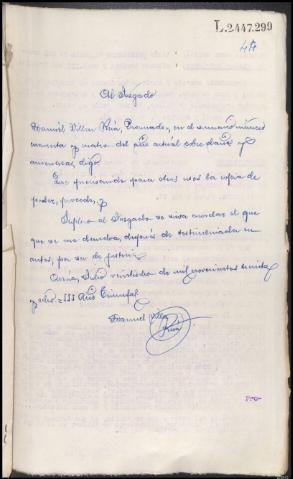 L.2447.299
Al Juzgado
Manuel Villar Puía, Procurador, en el sumario número
cuenta y cuatro del año actual sobre daños y
amenazas, digo
Que precisando para otros usos la copia de
poder, procede, y
Suplico al Juzgado se sirva acordar el que
que se me devuelva, después de testimoniada en
autos, por ser de justicia
Julio veintiocho de mil novecientos treinta
y ocho = III Año Triunfal.
Manuel Villar